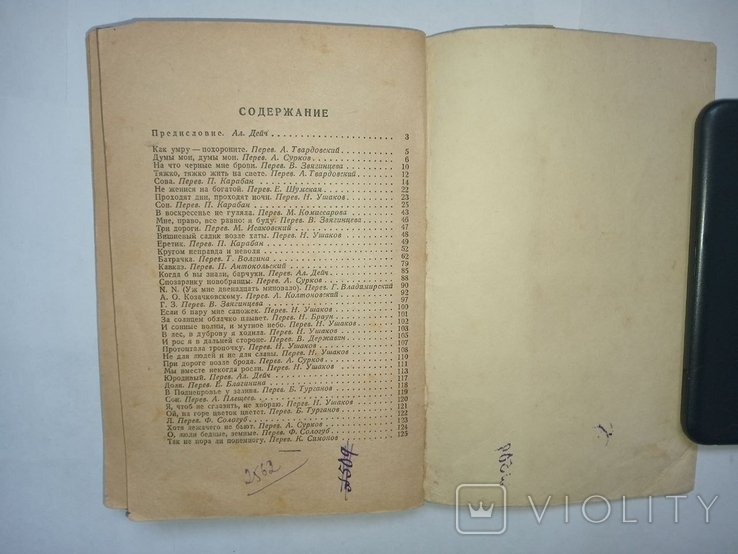 СОДЕРЖАНИЕ
Предисловие. Ал. Дейч 3
Как умру — похороните. Перев. А. Твардовский 5
Думы мои, думы мои. Перев. А. Сурков 6
На что черные мне брови. Перев. В. Звягинцева 10
Тяжко, тяжко жить на свете. Перев. А. Твардовский 12
Сова. Перев. П. Карабан 14
Не женися на богатой. Перев. Е. Шумская 22
Проходят дни, проходят ночи. Перев. Н. Ушаков 23
Сон. Перев. П. Карабан 25
В воскресенье не гуляла. Перев. М. Комиссарова 43
Мне, право, все равно: я буду. Перев. В. Звягинцева 46
Три дороги. Перев. М. Исаковский 47
Вишневый садик возле хаты. Перев. Н. Ушаков 48
Еретик. Перев. П. Карабан 49
Кругом неправда и неволя 52
Батрачка. Перев. Т. Волгина 62
Кавказ. Перев. П. Антокольский 79
Когда б вы знали, барчуки. Перев. Ал. Дейч 85
Спозаранку новобранцы. Перев. А. Сурков 88
N. N. (Уж мне двенадцать миновало). Перев. Г. Владимирский 90
А. О. Козачковскому. Перев. А. Колтоновский 92
Г. З. Перев. В. Звягинцева 97
Если б пару мне сапожек. Перев. Н. Ушаков 100
За солнцем облачко плывет. Перев. Н. Браун 101
И сонные волны, и мутное небо. Перев. Н. Ушаков 102
В лес, в дуброву я ходила. Перев. Н. Ушаков 103
И рос я в дальней стороне. Перев. В. Державин 105
Протоптала тропочку. Перев. Н. Ушаков 107
Не для людей и не для славы. Перев. Н. Ушаков 108
При дороге возле брода. Перев. А. Сурков 110
Мы вместе некогда росли. Перев. Н. Ушаков 111
Юродивый. Перев. Ал. Дейч 113
Доля. Перев. Е. Благинина 117
В Поднепровье у залива. Перев. Б. Турганов 118
Сон. Перев. А. Плещеев 119
Я, чтоб не сглазить, не хвораю. Перев. Н. Ушаков 120
Ой, на горе цветок цветет. Перев. Б. Турганов 121
Л. Перев. Ф. Сологуб 122
Хотя лежачего не бьют. Перев. А. Сурков 123
О, люди бедные, земные. Перев. Ф. Сологуб 124
Так не пора ли понемногу. Перев. К. Самойлов 125
2562
VIOLITY